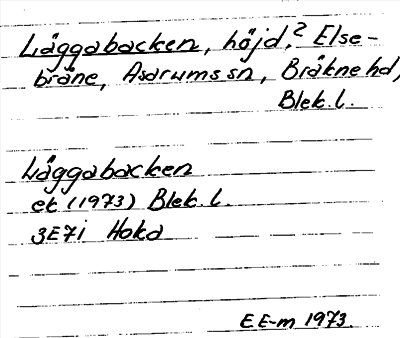 Låggabacken, höjd,? Else-
bråne, Asarums sn, Bräkne hd,
Blek. l.
Låggabacken
ek (1973) Blek. l.
3E7i Hoka
EE-m 1973.